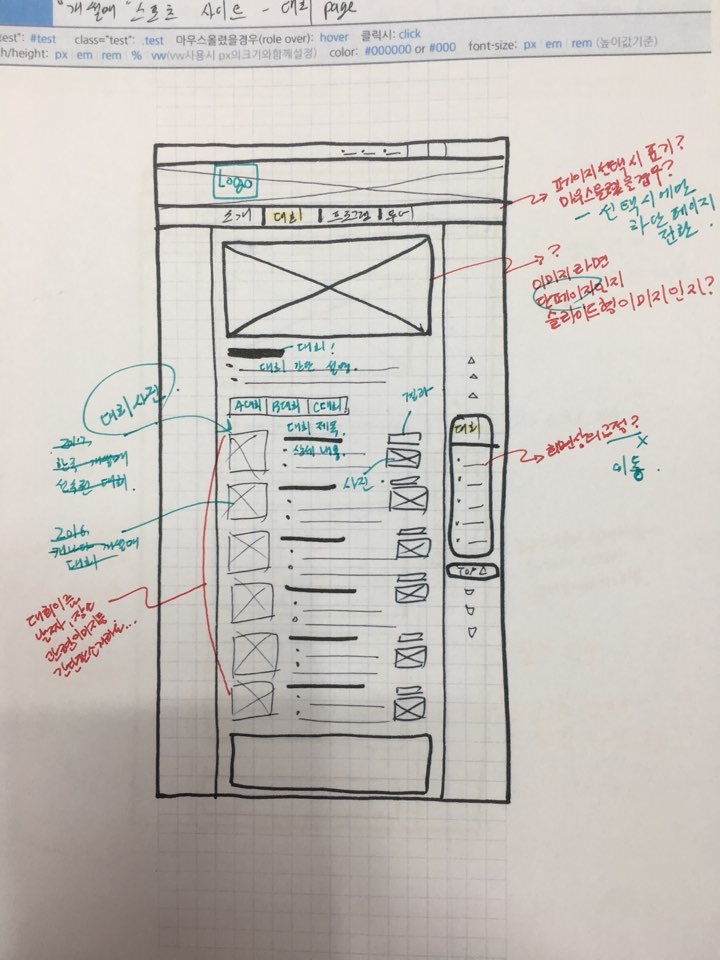 "개썰매" 스포츠 사이트 - 대회 page
test": #test class="test": .test 마우스올렸을경우(role over): hover 클릭시: click
h/height: px em rem % vw(vw사용시 px의크기와함께설정) color: #000000 or #000 font-size: px em rem (높이값기준)
Logo
소개 대회 프로그램 투어
페이지 선택 시 표기?
마우스올렸을 경우?
- 선택 시에만
하단 페이지
전환
?
이미지라면
단페이지인지
슬라이드형이미지인지?
대회!
대회 간단 설명.
대회 사진
A대회 B대회 C대회
결과
대회 제목.
상세내용.
사진
2017
한국 개썰매
선수권 대회.
2016
개썰매
대회
대회이름,
날짜, 장소
관련이미지등
간단한소개하는...
대회
화면상의 고정?
x
이동
TOP △